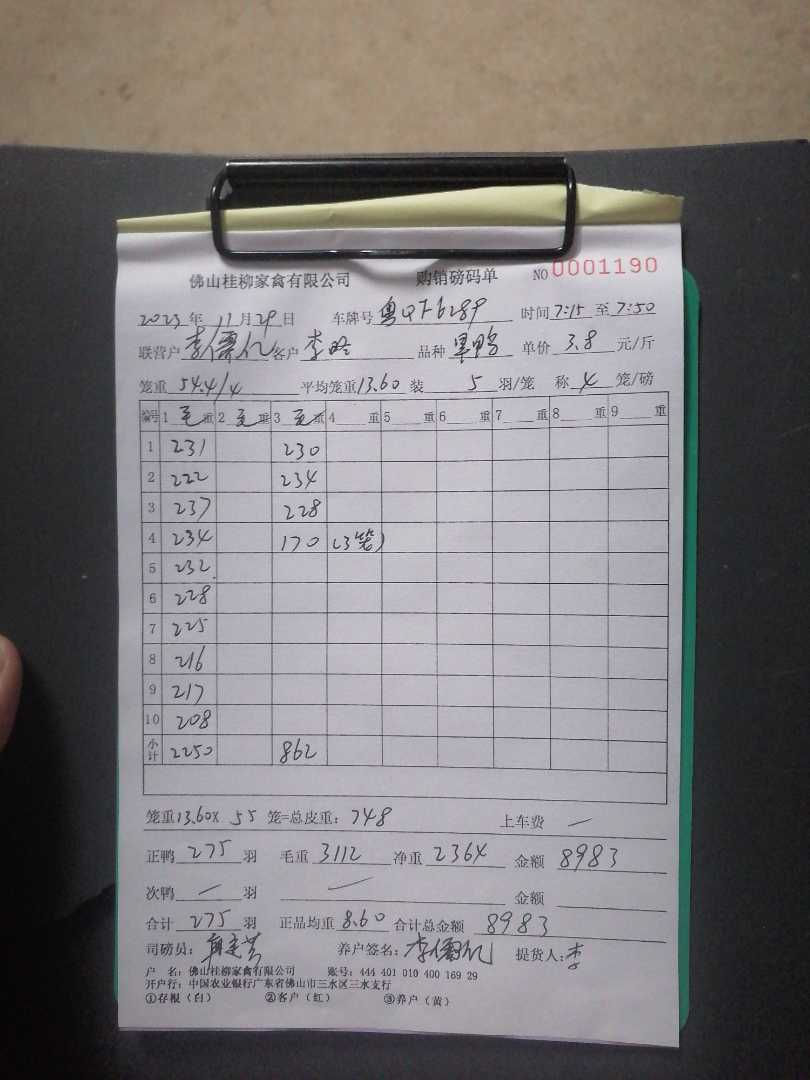 佛山桂柳家禽有限公司 购销磅码单 NO 0001190
2023年11月29日 车牌号 粤QF6289 时间 7:15 至 7:50
联营户 李儒亿 客户 李 品种 单价 3.8 元/斤
笼重 54.4/4 平均笼重 13.60 装 5 羽/笼 称 4 笼/磅
编号 1 毛重 2 毛重 3 毛重 4 重 5 重 6 重 7 重 8 重 9 重
1 231 230
2 222 234
3 237 228
4 234 170 (3笼)
5 232
6 228
7 225
8 216
9 217
10 208
小计 2250 862
笼重 13.60 X 55 笼=总皮重: 748 上车费 —
正鸭 275 羽 毛重 3112 净重 2364 金额 8983
次鸭 — 羽 — 金额
合计 275 羽 正品均重 8.60 合计总金额 8983
司磅员: 养户签名: 李儒亿 提货人: 李
户 名: 佛山桂柳家禽有限公司 账号: 444 401 010 400 169 29
开户行: 中国农业银行广东省佛山市三水区三水支行
①存根（白） ②客户（红） ③养户（黄）